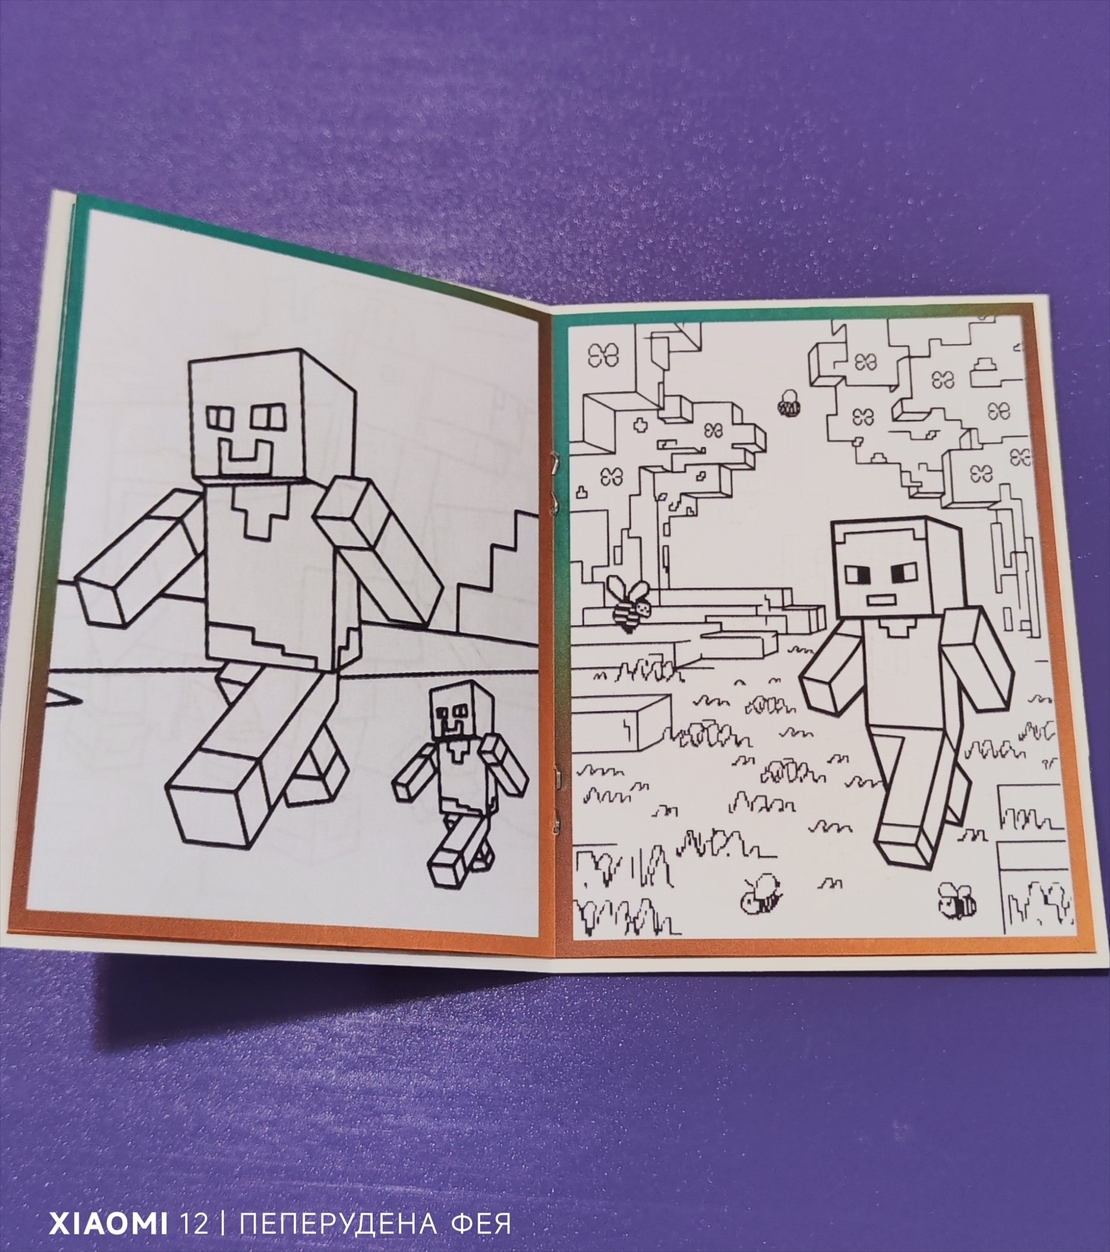 XIAOMI 12 | ПЕПЕРУДЕНА ФЕЯ